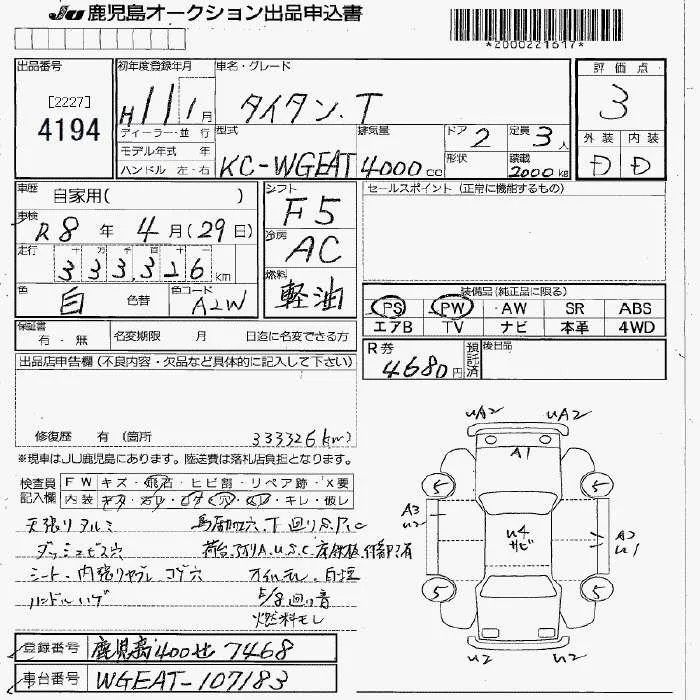 JU 鹿児島オークション出品申込書
*2000221617*
出品番号
[2227]
4194
初年度登録年月
H11 1月
車名・グレード
タイタン.T
評価点
3
外装 内装
D D
ディーラー・並行
モデル年式 年
ハンドル 左・右
型式
KC-WGEAT
排気量
4000cc
ドア 2
形状
定員 3人
積載 2000kg
車歴 自家用( )
車検
R8年4月(29日)
走行 十万千百十一
333,326km
色 白 色替 色コード A2W
シフト
F5
冷房
AC
燃料
軽油
セールスポイント (正常に機能するもの)
装備品(純正品に限る)
PS PW AW SR ABS
エアB TV ナビ 本革 4WD
保証書 有・無 名変期限 月 日迄に名変できる方
R券 4680円 預託済
後日品
出品店申告欄(不良内容・欠品など具体的に記入して下さい)
修復歴 有(箇所 333326km)
※現車はJU鹿児島にあります。陸送費は落札店負担となります。
検査員記入欄
FW キズ・飛石・ヒビ割・リペア跡・X要
内装 キズ・汚れ・コゲ・穴・ハレ・キレ・破レ
天張りヌルミ
ダッシュビス穴
シート・内張りヤブレ コゲ穴
ハンドルハゲ
荷台アオリA.U.S.C
オイルモレ
回り音
燃料モレ
UA2 UA2
A1
5 5
A3
U2
U4
サビ
A2
U1
5 5
U2 U2
登録番号 鹿児島400せ7468
車台番号 WGEAT-107183